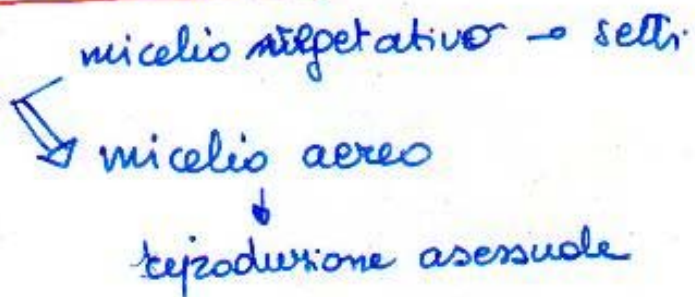 micelio vegetativo → setti
micelio aereo
riproduzione asessuale